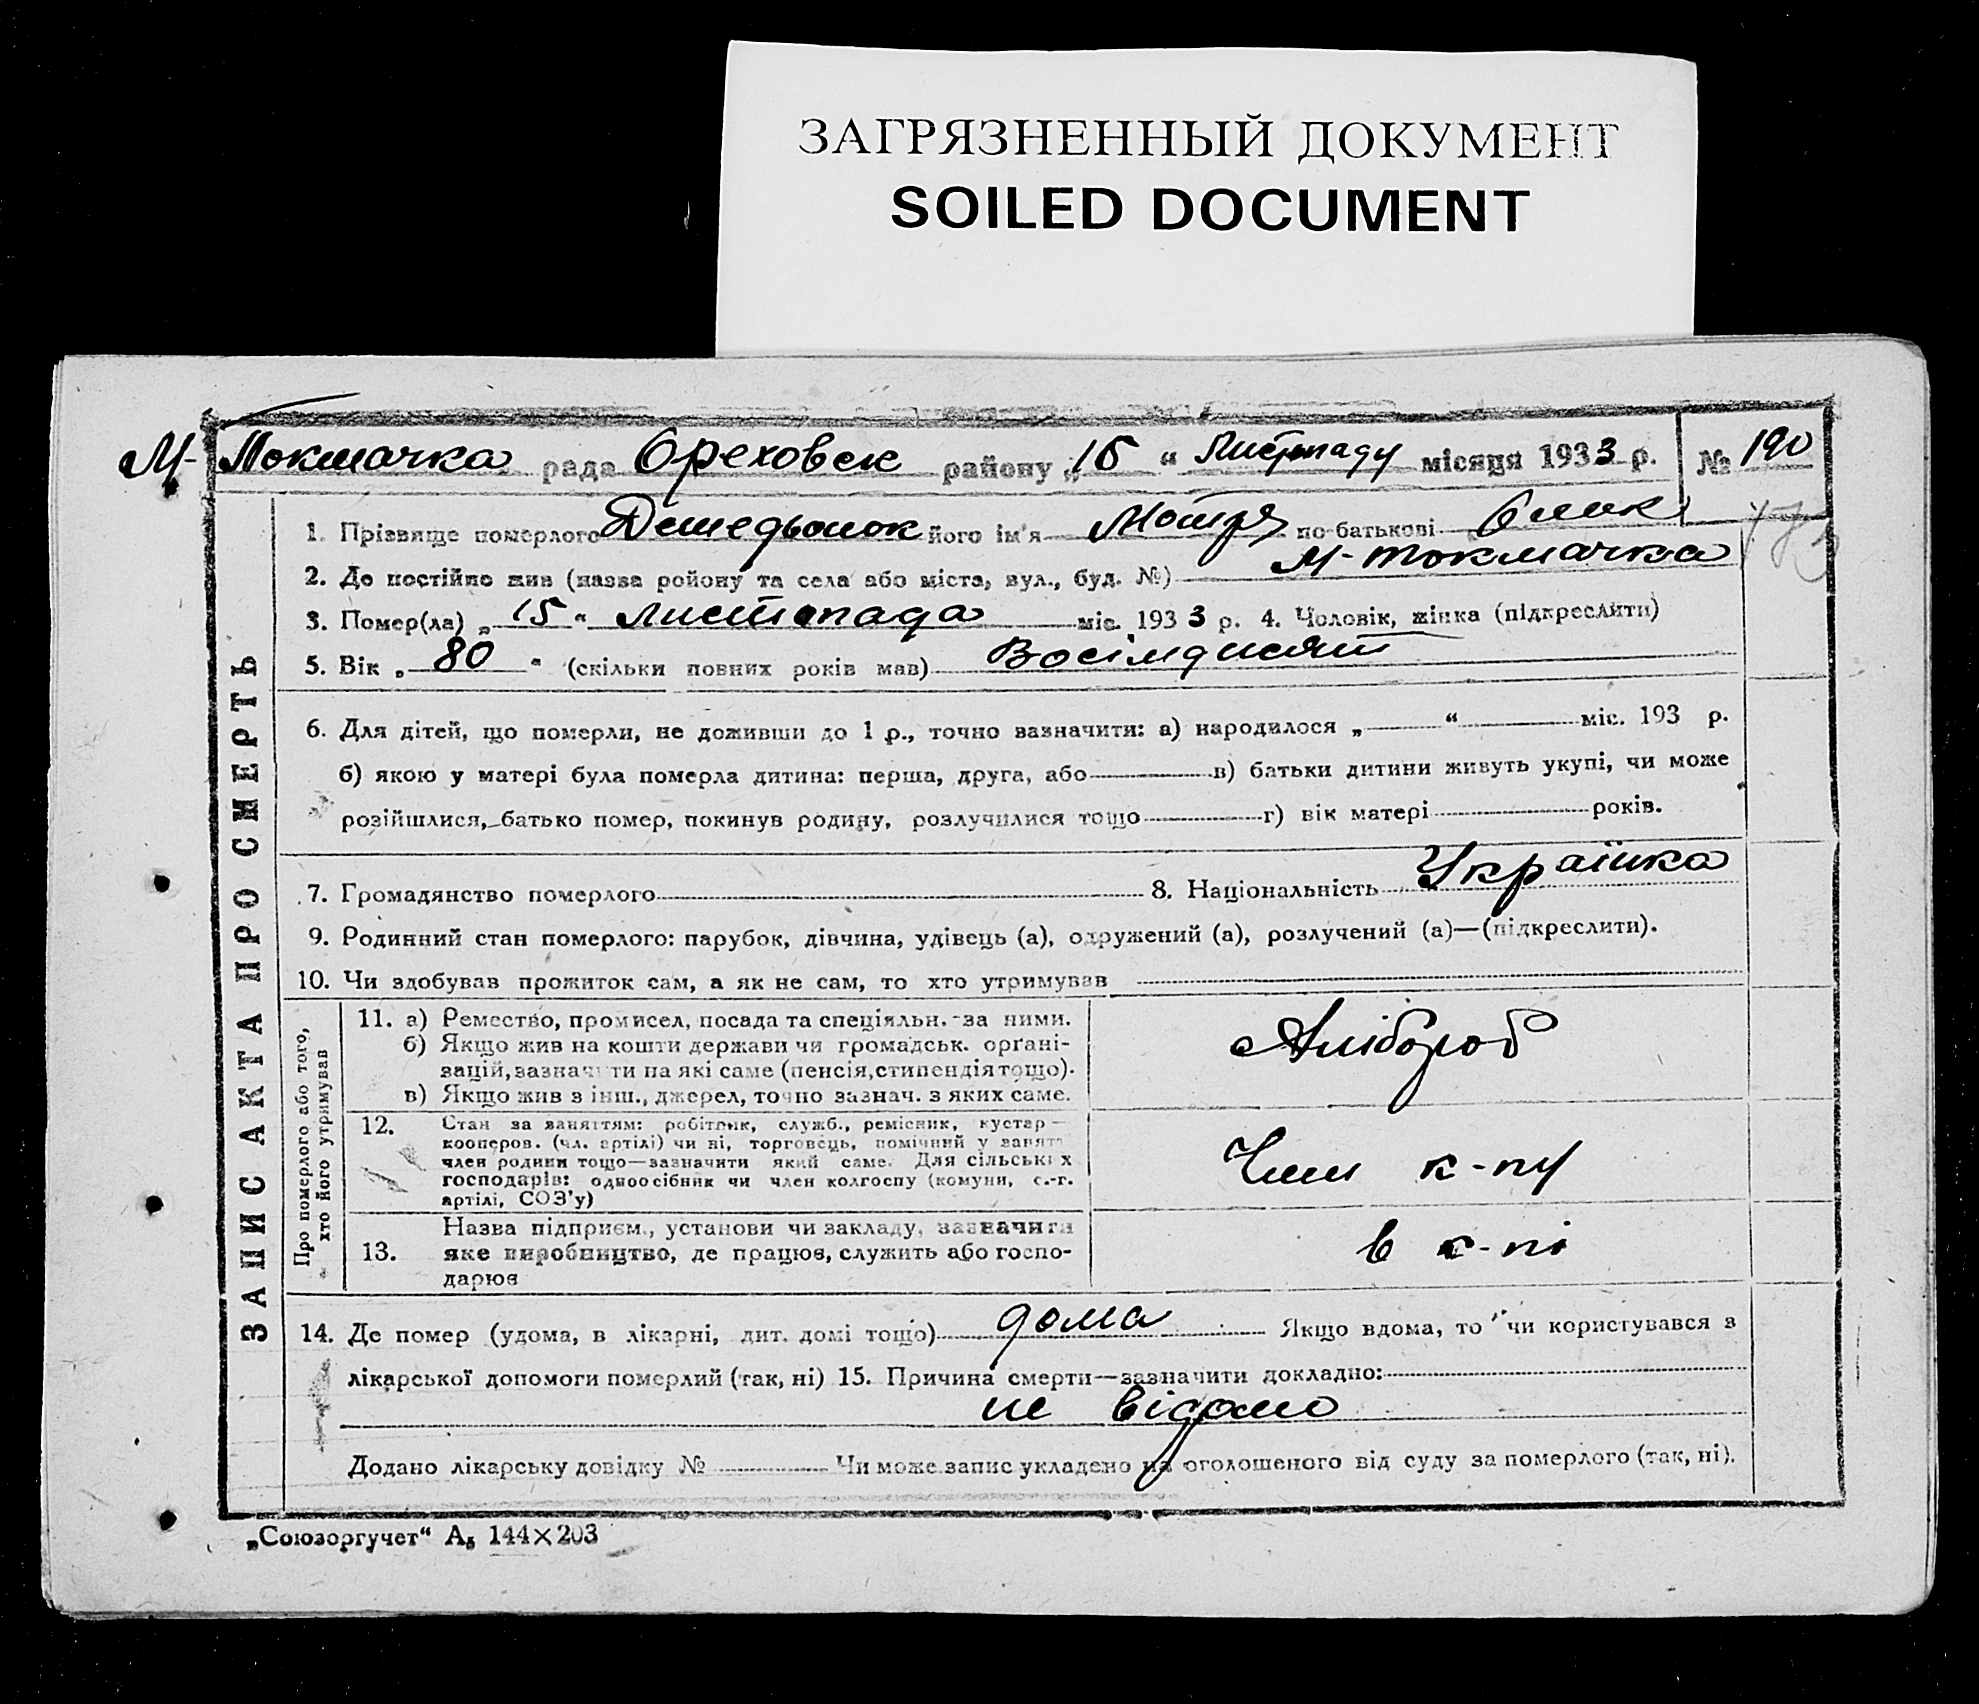 ЗАГРЯЗНЕННЫЙ ДОКУМЕНТ
SOILED DOCUMENT
М-Токмачка рада Ореховск району „15 “ Листопаду місяця 1933 р. № 190
1. Прізвище померлого його ім'я Мотря по-батькові
2. Де постійно жив (назва району та села або міста, вул., буд. №) М-Токмачка
3. Помер(ла) „ 15 “ листопада міс. 1933 р. 4. Чоловік, жінка (підкреслити)
5. Вік „ 80 “ (скільки повних років мав) Восімдисят
6. Для дітей, що померли, не доживши до 1 р., точно зазначити: а) народилося „ “ міс. 193 р.
б) якою у матері була померла дитина: перша, друга, або в) батьки дитини живуть укупі, чи може
розійшлися, батько помер, покинув родину, розлучилися тощо г) вік матері років.
7. Громадянство померлого 8. Національність Українка
9. Родинний стан померлого: парубок, дівчина, удівець (а), одружений (а), розлучений (а)—(підкреслити).
10. Чи здобував прожиток сам, а як не сам, то хто утримував
ЗАПИС АКТА ПРО СМЕРТЬ
Про померлого або того, хто його утримував
11. а) Ремество, промисел, посада та спеціяльн. за ними.
б) Якщо жив на кошти держави чи громадськ. орґані-
зацій, зазначити на які саме (пенсія, стипендія тощо).
в) Якщо жив з інш., джерел, точно зазнач. з яких саме.
Хлібороб
12. Стан за заняттям: робітник, служб., ремісник, кустар—
кооперов. (чл. артілі) чи ні, торговець, помічний у занятт
член родини тощо—зазначити який саме. Для сільських
господарів: одноосібник чи член колгоспу (комуни, с.-г.
артілі, СОЗ'у)
Член к-пу
13. Назва підприєм., установи чи закладу, зазначити
яке виробництво, де працює, служить або госпо-
дарює
в к-пі
14. Де помер (удома, в лікарні, дит. домі тощо) дома Якщо вдома, то чи користувався з
лікарської допомоги померлий (так, ні) 15. Причина смерти—зазначити докладно:
не відомо
Додано лікарську довідку № Чи може запис укладено на оголошеного від суду за померлого (так, ні).
„Союзоргучет“ А₅ 144×203